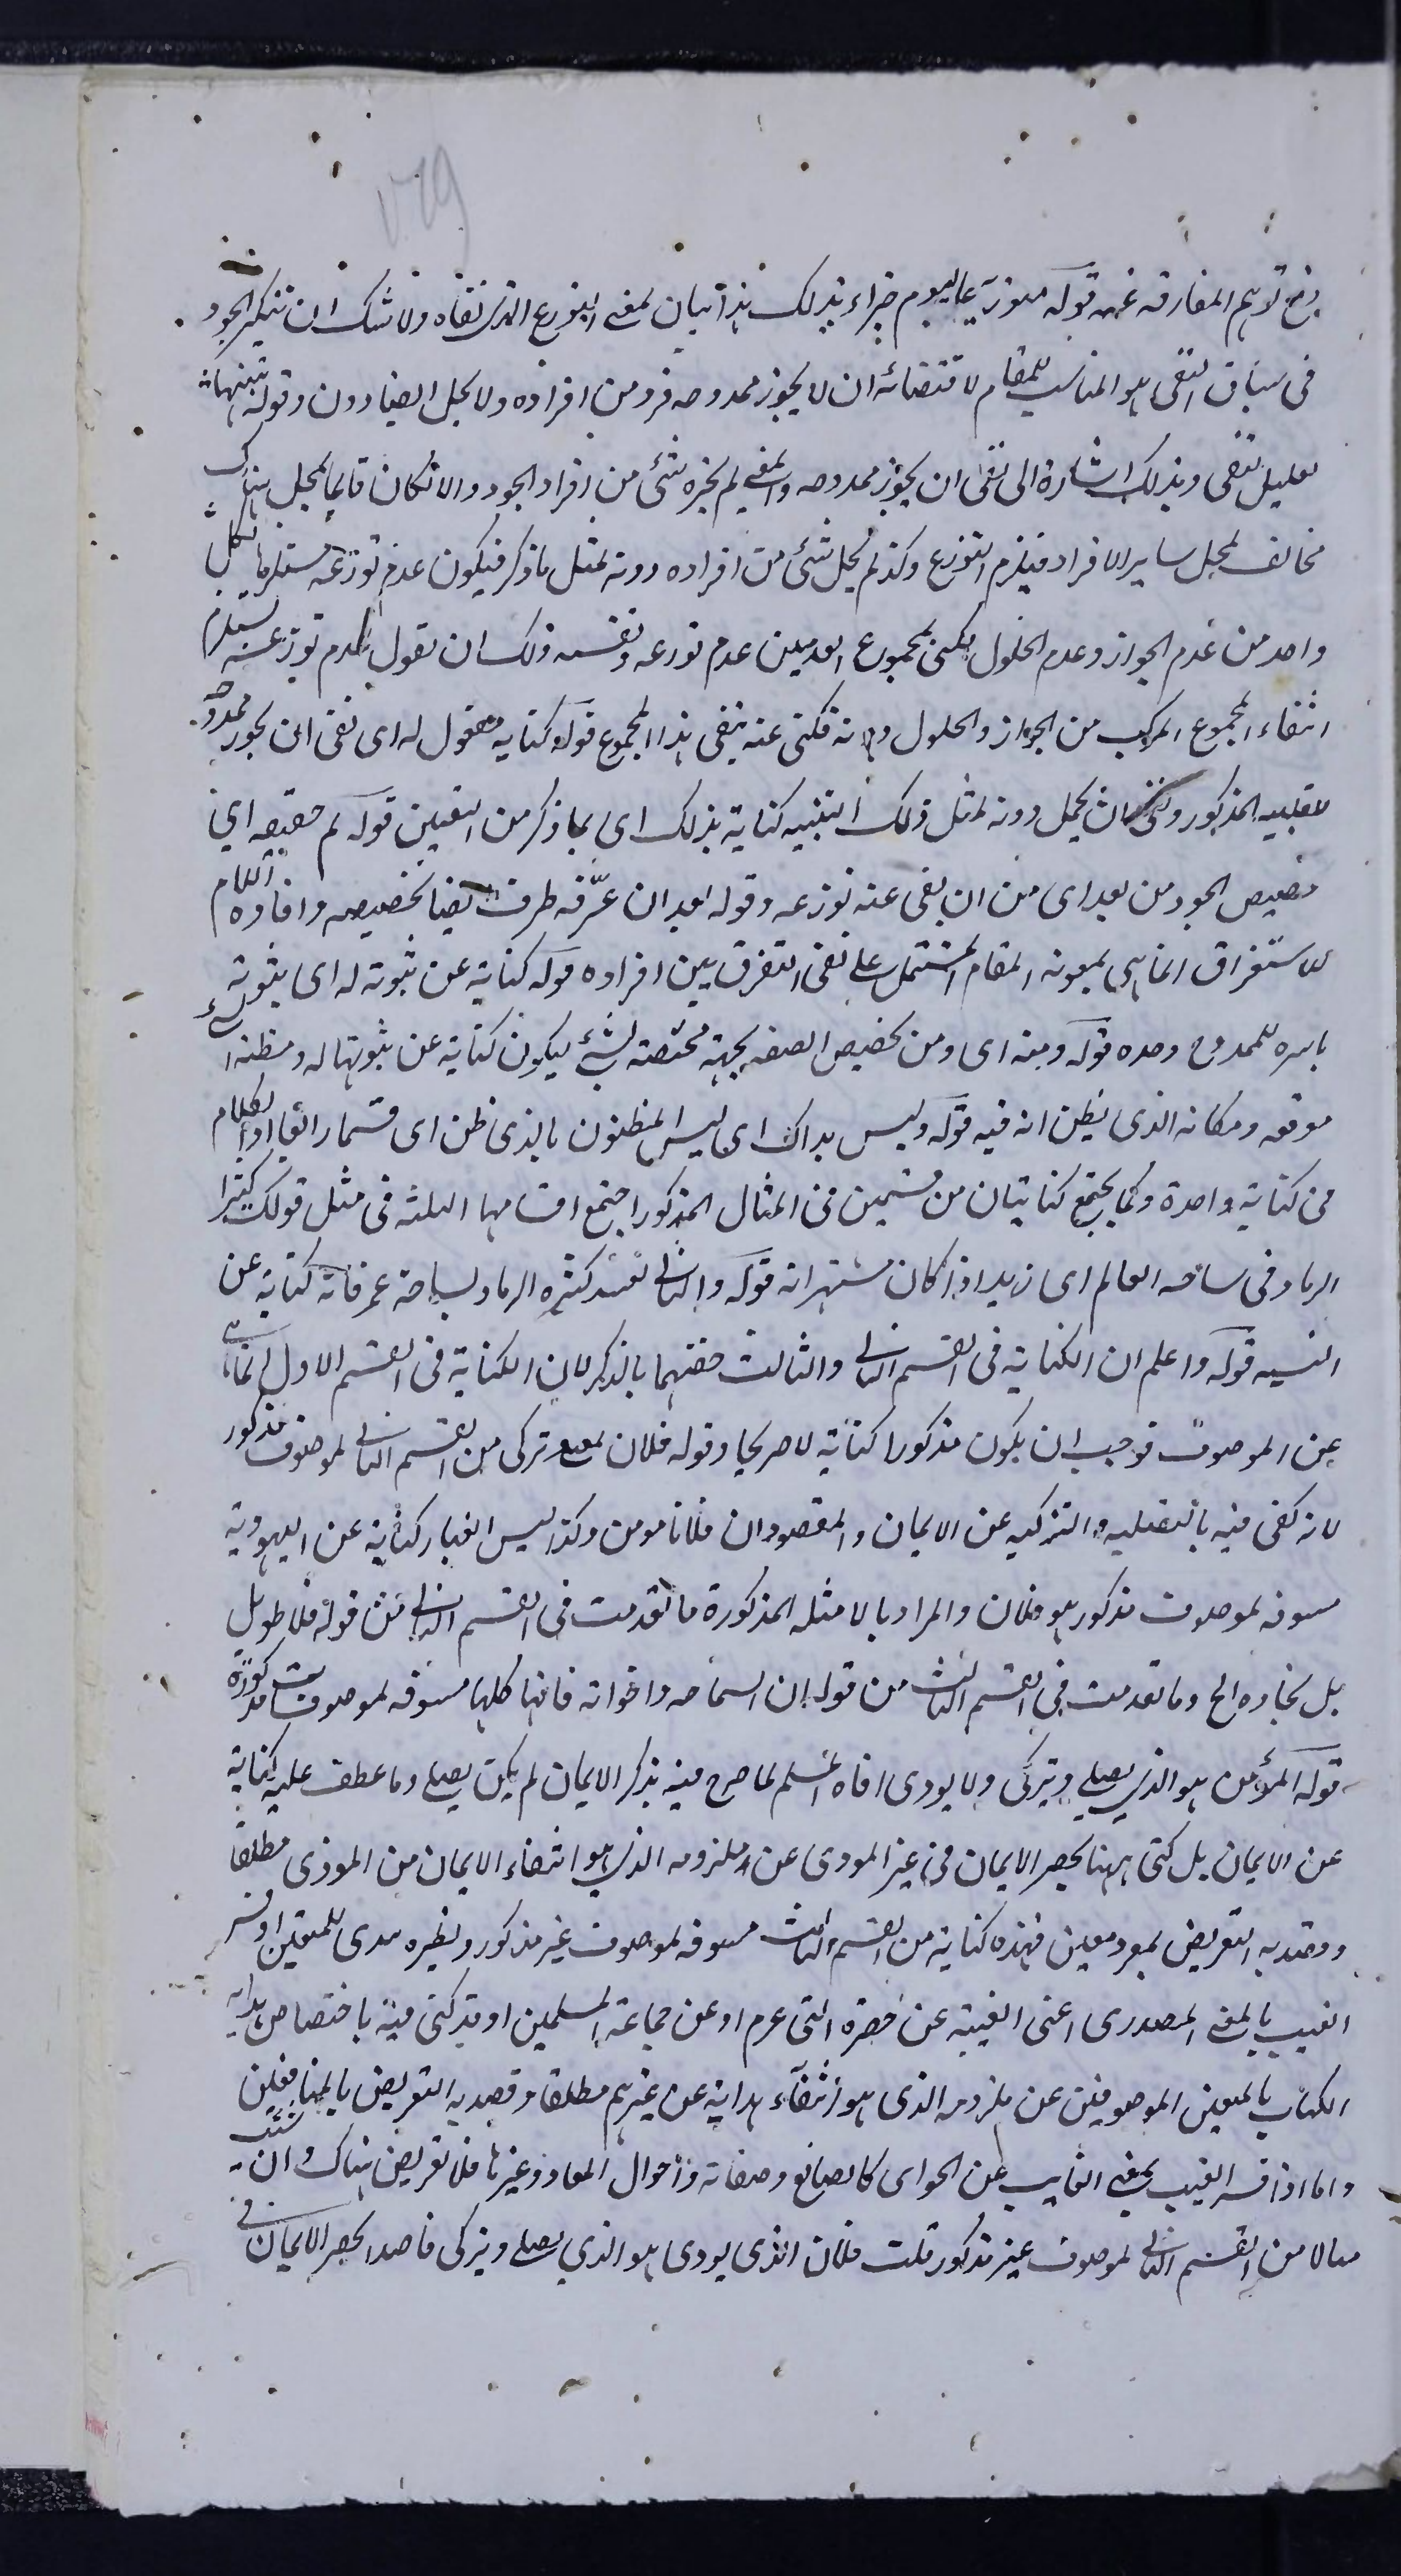 دفع توهم المفارقة عنه قوله منوزعا اليوم جزاء بذلك هذا بيان لمعنى التوزع الذى نفاه ولا شك ان تنكير الجود
فى سياق النفى هو المناسب للمقام لاقتضائه ان لا يجوز ممدوحه فرد من افراده ولا يحل ايضا دون وقوله تنبيها
تعليل لنفى وبذلك اشارة الى نفى ان يجوز ممدوحه والمعنى لم يجزه شئ من افراد الجود والا لكان قايما بمحل هناك
مخالف لمحل ساير الافراد فيلزم التوزع وكذا لم يحل شئ من افراده دونه لمثل ما ذكر فيكون عدم توزعه مستلزما لكل
واحد من عدم الجواز وعدم الحلول فكنى بمجموع العدمين عدم توزعه وتقسمه ولك ان تقول عدم توزعه يستلزم
انتفاء المجموع المركب من الجواز والحلول دونه فكنى عنه بنفى هذا المجموع قوله كناية مفعول له اى نفى ان يجوز ممدوحه
للتنبيه المذكور ونفى ان يحل دونه لمثل ذلك التنبيه كناية بذلك اى بما ذكر من النفيين قوله ثم خصصه اى
تخصيص الجود من بعد اى من ان نفى عنه توزعه وقوله بعد ان عرّفه ظرف ايضا لخصصه وافادة اللام
للاستغراق انما هى بمعونة المقام المشتمل على نفى التفرق بين افراده قوله كناية عن ثبوته له اى ثبوته
باسره للممدوح وحده قوله ومنه اى ومن تخصيص الصفة بجهة مختصة بشئ ليكون كناية عن ثبوتها له ومظنة الشئ
موقعه ومكانه الذى يظن انه فيه قوله وليس بذاك اى ليس المظنون بالذى ظن اى قسما رابعا اذ الكلام
فى كناية واحدة وكما يجتمع كنايتان من قسمين فى المثال المذكور اجتمع اقسامها الثلثة فى مثل قولك كثيرا
الرماد فى ساحة العالم اى زيد اذا كان مشتهرا به قوله والثانى تقييد كثرة الرماد بساحة عمرو فانه كناية عن
النسبة قوله واعلم ان الكناية فى القسم الثانى والثالث خصهما بالذكر لان الكناية فى القسم الاول انما هى
عن الموصوف فوجب ان يكون مذكورا كناية لا صريحا وقوله فلان يصلى ويزكى من القسم الثانى لموصوف مذكور
لانه كنى فيه بالتصلية والتزكية عن الايمان والمقصود ان فلانا مومن وكذا لبس الغيار كناية عن اليهودية
مسوقة لموصوف مذكور هو فلان والمراد بالامثلة المذكورة ما تقدمت فى القسم الثانى من قوله فلان طويل
بل نجاده الخ وما تقدمت فى القسم الثالث من قوله ان السماحة واخواته فانها كلها مسوقة لموصوفات مذكورة
قوله المؤمن هو الذى يصلى ويزكى ولا يوذى اخاه المسلم لما صرح فيه بذكر الايمان لم يكن يصلى وما عطف عليه كناية
عن الايمان بل كنى ههنا بحصر الايمان فى غير الموذى عن ملزومه الذى هو انتفاء الايمان من الموذى مطلقا
وقصد به التعريض بموذ معين فهذه كناية من القسم الثالث مسوقة لموصوف غير مذكور ونظيره هدى للمتقين اذا فسر
الغيب بالمعنى المصدرى اعنى الغيبة عن حضرة النبى عرم او عن جماعة المسلمين او قد كنى فيه باختصاص هداية
الكتاب بالمتقين الموصوفين عن ملزومه الذى هو انتفاء هدايته عن غيرهم مطلقا وقصد به التعريض بالمنافقين
واما اذا فسر الغيب بمعنى الغايب عن الحواى كالصانع وصفاته واحوال المعاد وغيرها فلا تعريض هناك وان شئت
مثالا من القسم الثانى لموصوف غير مذكور قلت فلان الذى يوذى هو الذى يصلى ويزكى قاصدا لحصر الايمان فى